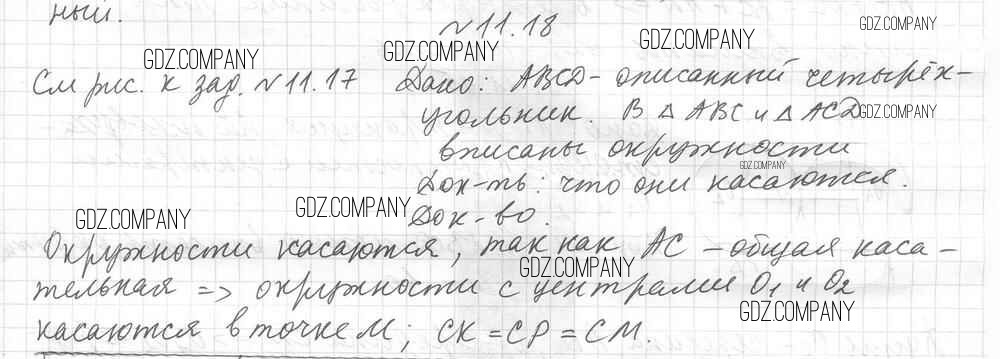 ный.
№11.18
GDZ.COMPANY
GDZ.COMPANY GDZ.COMPANY GDZ.COMPANY
См рис. к зад. №11.17 Дано: ABCD - описанный четырёх-
угольник. В △ ABC и △ ACD GDZ.COMPANY
вписаны окружности
GDZ.COMPANY
Док-ть: что они касаются.
GDZ.COMPANY GDZ.COMPANY Док-во.
Окружности касаются, так как AC - общая каса-
GDZ.COMPANY
тельная => окружности с центрами O1 и O2
GDZ.COMPANY
касаются в точке M; CK = CP = CM.